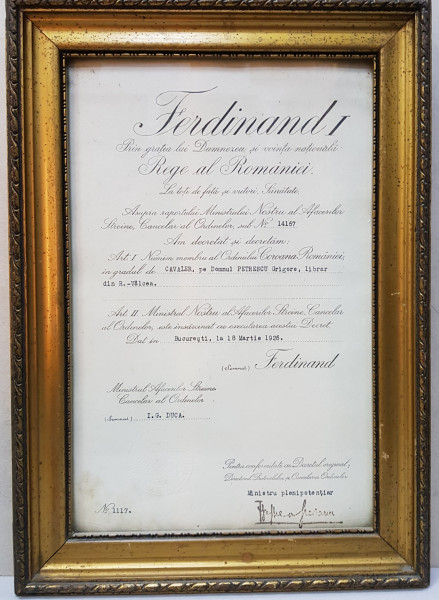 Ferdinand I
Prin grația lui Dumnezeu și voința națională
Rege al României.
La toți de față și viitori, Sănătate.
Asupra raportului Ministrului Nostru al Afacerilor
Străine, Cancelar al Ordinelor, sub No 14167
Am decretat și decretăm:
Art. I Numim membru al Ordinului Coroana României,
în gradul de CAVALER, pe Domnul PETRESCU Grigore, librar
din R.-Vâlcea.
Art. II. Ministrul Nostru al Afacerilor Străine, Cancelar
al Ordinelor, este însărcinat cu executarea acestui Decret.
Dat în București, la 18 Martie 1926.
(Semnat) Ferdinand
Ministrul Afacerilor Străine
Cancelar al Ordinelor
(Semnat) I.G. DUCA.
Pentru conformitate cu Decretul original,
Directorul Protocolului și Cancelariei Ordinelor
Ministru plenipotențiar
No. 1117.